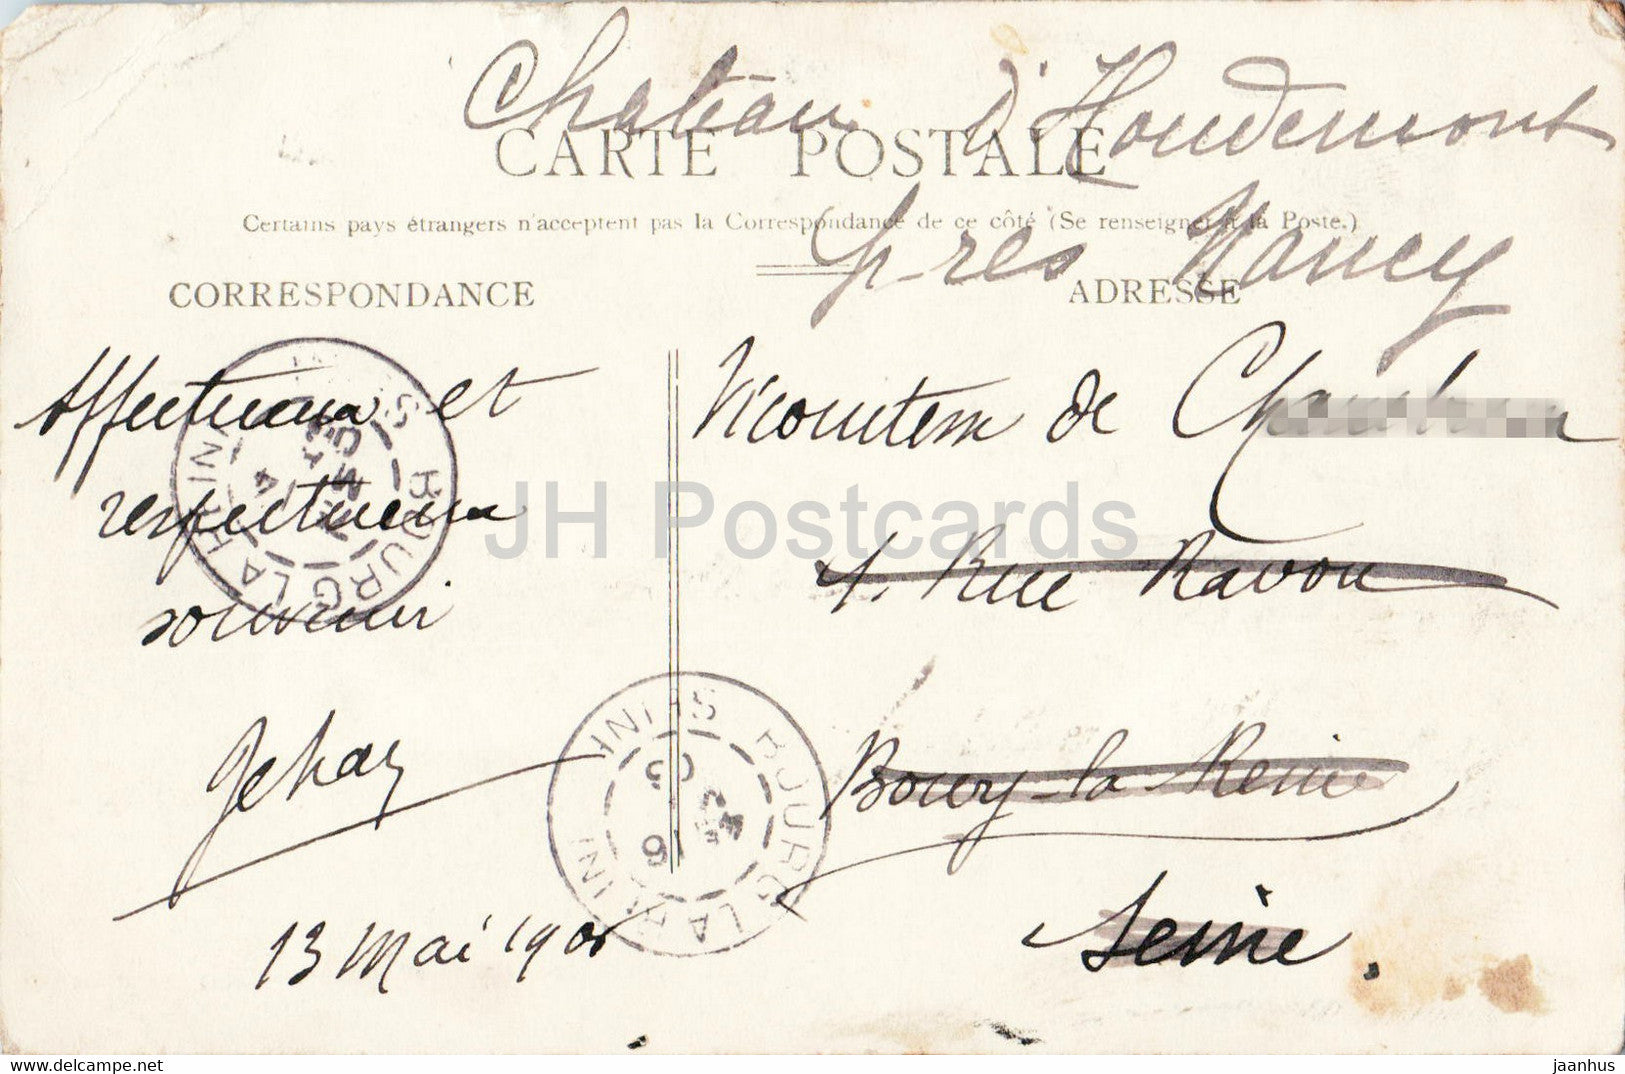 Château d'Houdemont
CARTE POSTALE
Certains pays étrangers n'acceptent pas la Correspondance de ce côté (Se renseigner à la Poste.)
près Nancy
CORRESPONDANCE
ADRESSE
Affectueux et
respectueux
souvenir
Jehan
13 Mai 1905
Vicomtesse de
1. Rue Ravon
Bourg-la-Reine
Seine.
BOURG LA REINE SEINE
BOURG LA REINE SEINE
JH Postcards
https://www.delcampe.net
jaanhus